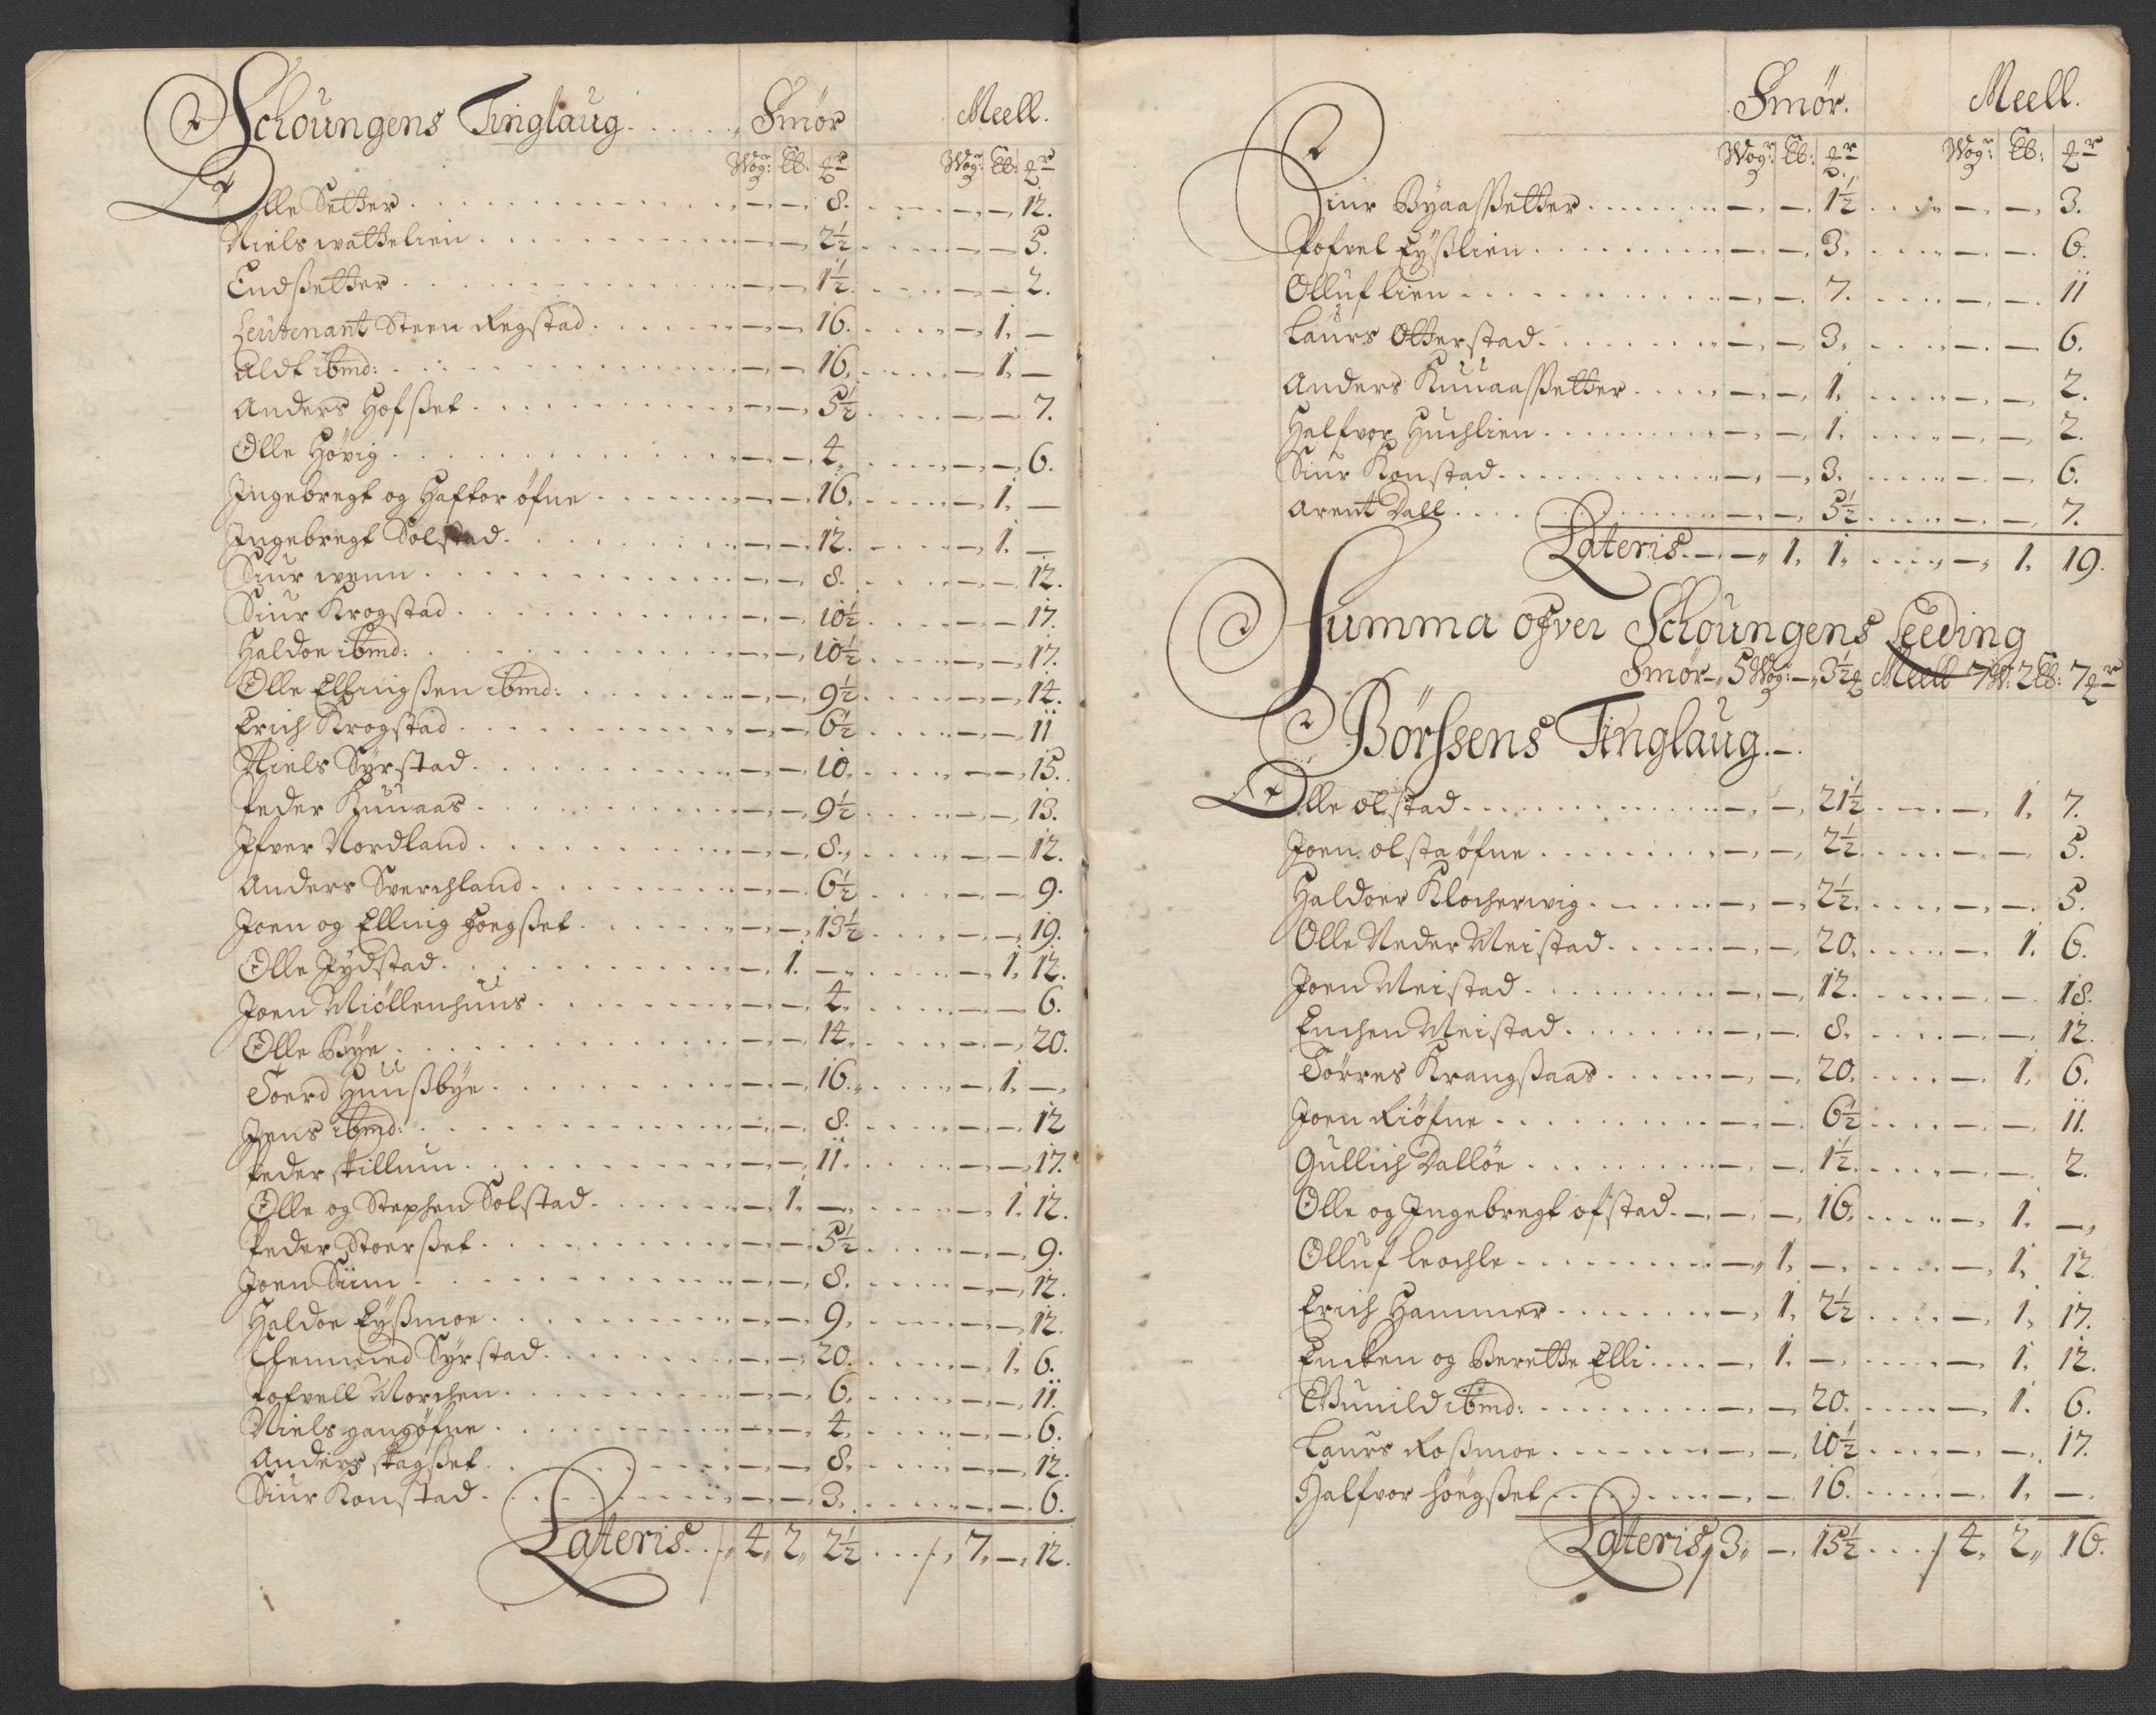 Schoungens Tinglaug . . . . . Smör Meell.
Wog: Lb: ℔r Wog: Lb: ℔r
Olle Setter . . . — — 8. . . . — — 12.
Niels wattelien . . . — — 2½ . . . — — 5.
Endßetter . . . — — 1½ . . . — — 2.
Leutenant Steen Regstad . . . — — 16. . . . — 1. —
Aldt ibmd: . . . — — 16. . . . — 1. —
Anders Hofßet . . . — — 5½ . . . — — 7.
Olle Hövig . . . — — 4. . . . — — 6.
Ingebregt og Haftor öfne . . . — — 16. . . . — 1. —
Ingebregt Solstad . . . — — 12. . . . — 1. —
Siur wenn . . . — — 8. . . . — — 12.
Siur Krogstad . . . — — 10½ . . . — — 17.
Haldoe ibmd: . . . — — 10½ . . . — — 17.
Olle Ellingßen ibmd: . . . — — 9½ . . . — — 14.
Erich Krogstad . . . — — 6½ . . . — — 11
Niels Syrstad . . . — — 10. . . . — — 15.
Peder Kuuaas . . . — — 9½ . . . — — 13.
Ifver Nordland . . . — — 8. . . . — — 12.
Anders Sverchland . . . — — 6½ . . . — — 9.
Joen og Elling Hoegßet . . . — — 13½ . . . — — 19.
Olle Jydstad . . . — 1. — . . . — 1. 12.
Joen Miöllenhuus . . . — — 4. . . . — — 6.
Olle Bye . . . — — 14. . . . — — 20.
Toerd Huußbye . . . — — 16. . . . — 1. —
Jens ibmd: . . . — — 8. . . . — — 12
Peder skillum . . . — — 11. . . . — — 17.
Olle og Stephen Solstad . . . — 1. — . . . — 1. 12.
Peder Stoerßet . . . — — 5½ . . . — — 9.
Joen Siim . . . — — 8. . . . — — 12.
Haldoe Eyßmoe . . . — — 9. . . . — — 12.
Efemmed Syrstad . . . — — 20. . . . — 1. 6.
Pofvell Morchen . . . — — 6. . . . — — 11.
Niels gangöfne . . . — — 4. . . . — — 6.
Anders skagßet . . . — — 8. . . . — — 12.
Siur Konstad . . . — — 3. . . . — — 6.
Lateris . . . 4. 2. 2½ . . . 7. — 12.
Smör. Meell.
Wog: Lb: ℔r Wog: Lb: ℔r
Siur Byaaßetter . . . — — 1½ . . . — — 3.
Pofvel Eyßlien . . . — — 3. . . . — — 6.
Olluf lien . . . — — 7. . . . — — 11
Laurs Otterstad . . . — — 3. . . . — — 6.
Anders Kuuaasßetter . . . — — 1. . . . — — 2.
Halfvor Huchlien . . . — — 1. . . . — — 2.
Siur Konstad . . . — — 3. . . . — — 6.
Arent Dall . . . — — 5½ . . . — — 7.
Lateris . — — 1. 1. . . . — 1. 19.
Summa ofver Schoungens Leeding
Smör — 5 Wog: — 3½ ℔ Meell 7 W: 2 Lb: 7 ℔r
Börssens Tinglaug. —
Olle olstad . . . — — 21½ . . . — 1. 7.
Joen olsta öfne . . . — — 2½ . . . — — 5.
Haldoer Klocherwig . . . — — 2½ . . . — — 5.
Olle Neder Meistad . . . — — 20. . . . — 1. 6.
Joen Meistad . . . — — 12. . . . — — 18.
Enchen Meistad . . . — — 8. . . . — — 12.
Törres Krangßaas . . . — — 20. . . . — 1. 6.
Joen Riöfne . . . — — 6½ . . . — — 11.
Gullich Dallöe . . . — — 1½ . . . — — 2.
Olle og Ingebregt ofstad . — — — 16. . . . — 1. —
Olluf leochle . . . — 1. — . . . — 1. 12.
Erich Hammer . . . — 1. 2½ . . . — 1. 17.
Encken og Berette Elli . . . — 1. — . . . — 1. 12.
Gunild ibmd: . . . — — 20. . . . — 1. 6.
Laurs Roßmoe . . . — — 10½ . . . — — 17.
Halfvor höegßet . . . — — 16. . . . — 1. —
Lateris 3. — 15½ . . . 4. 2. 16.